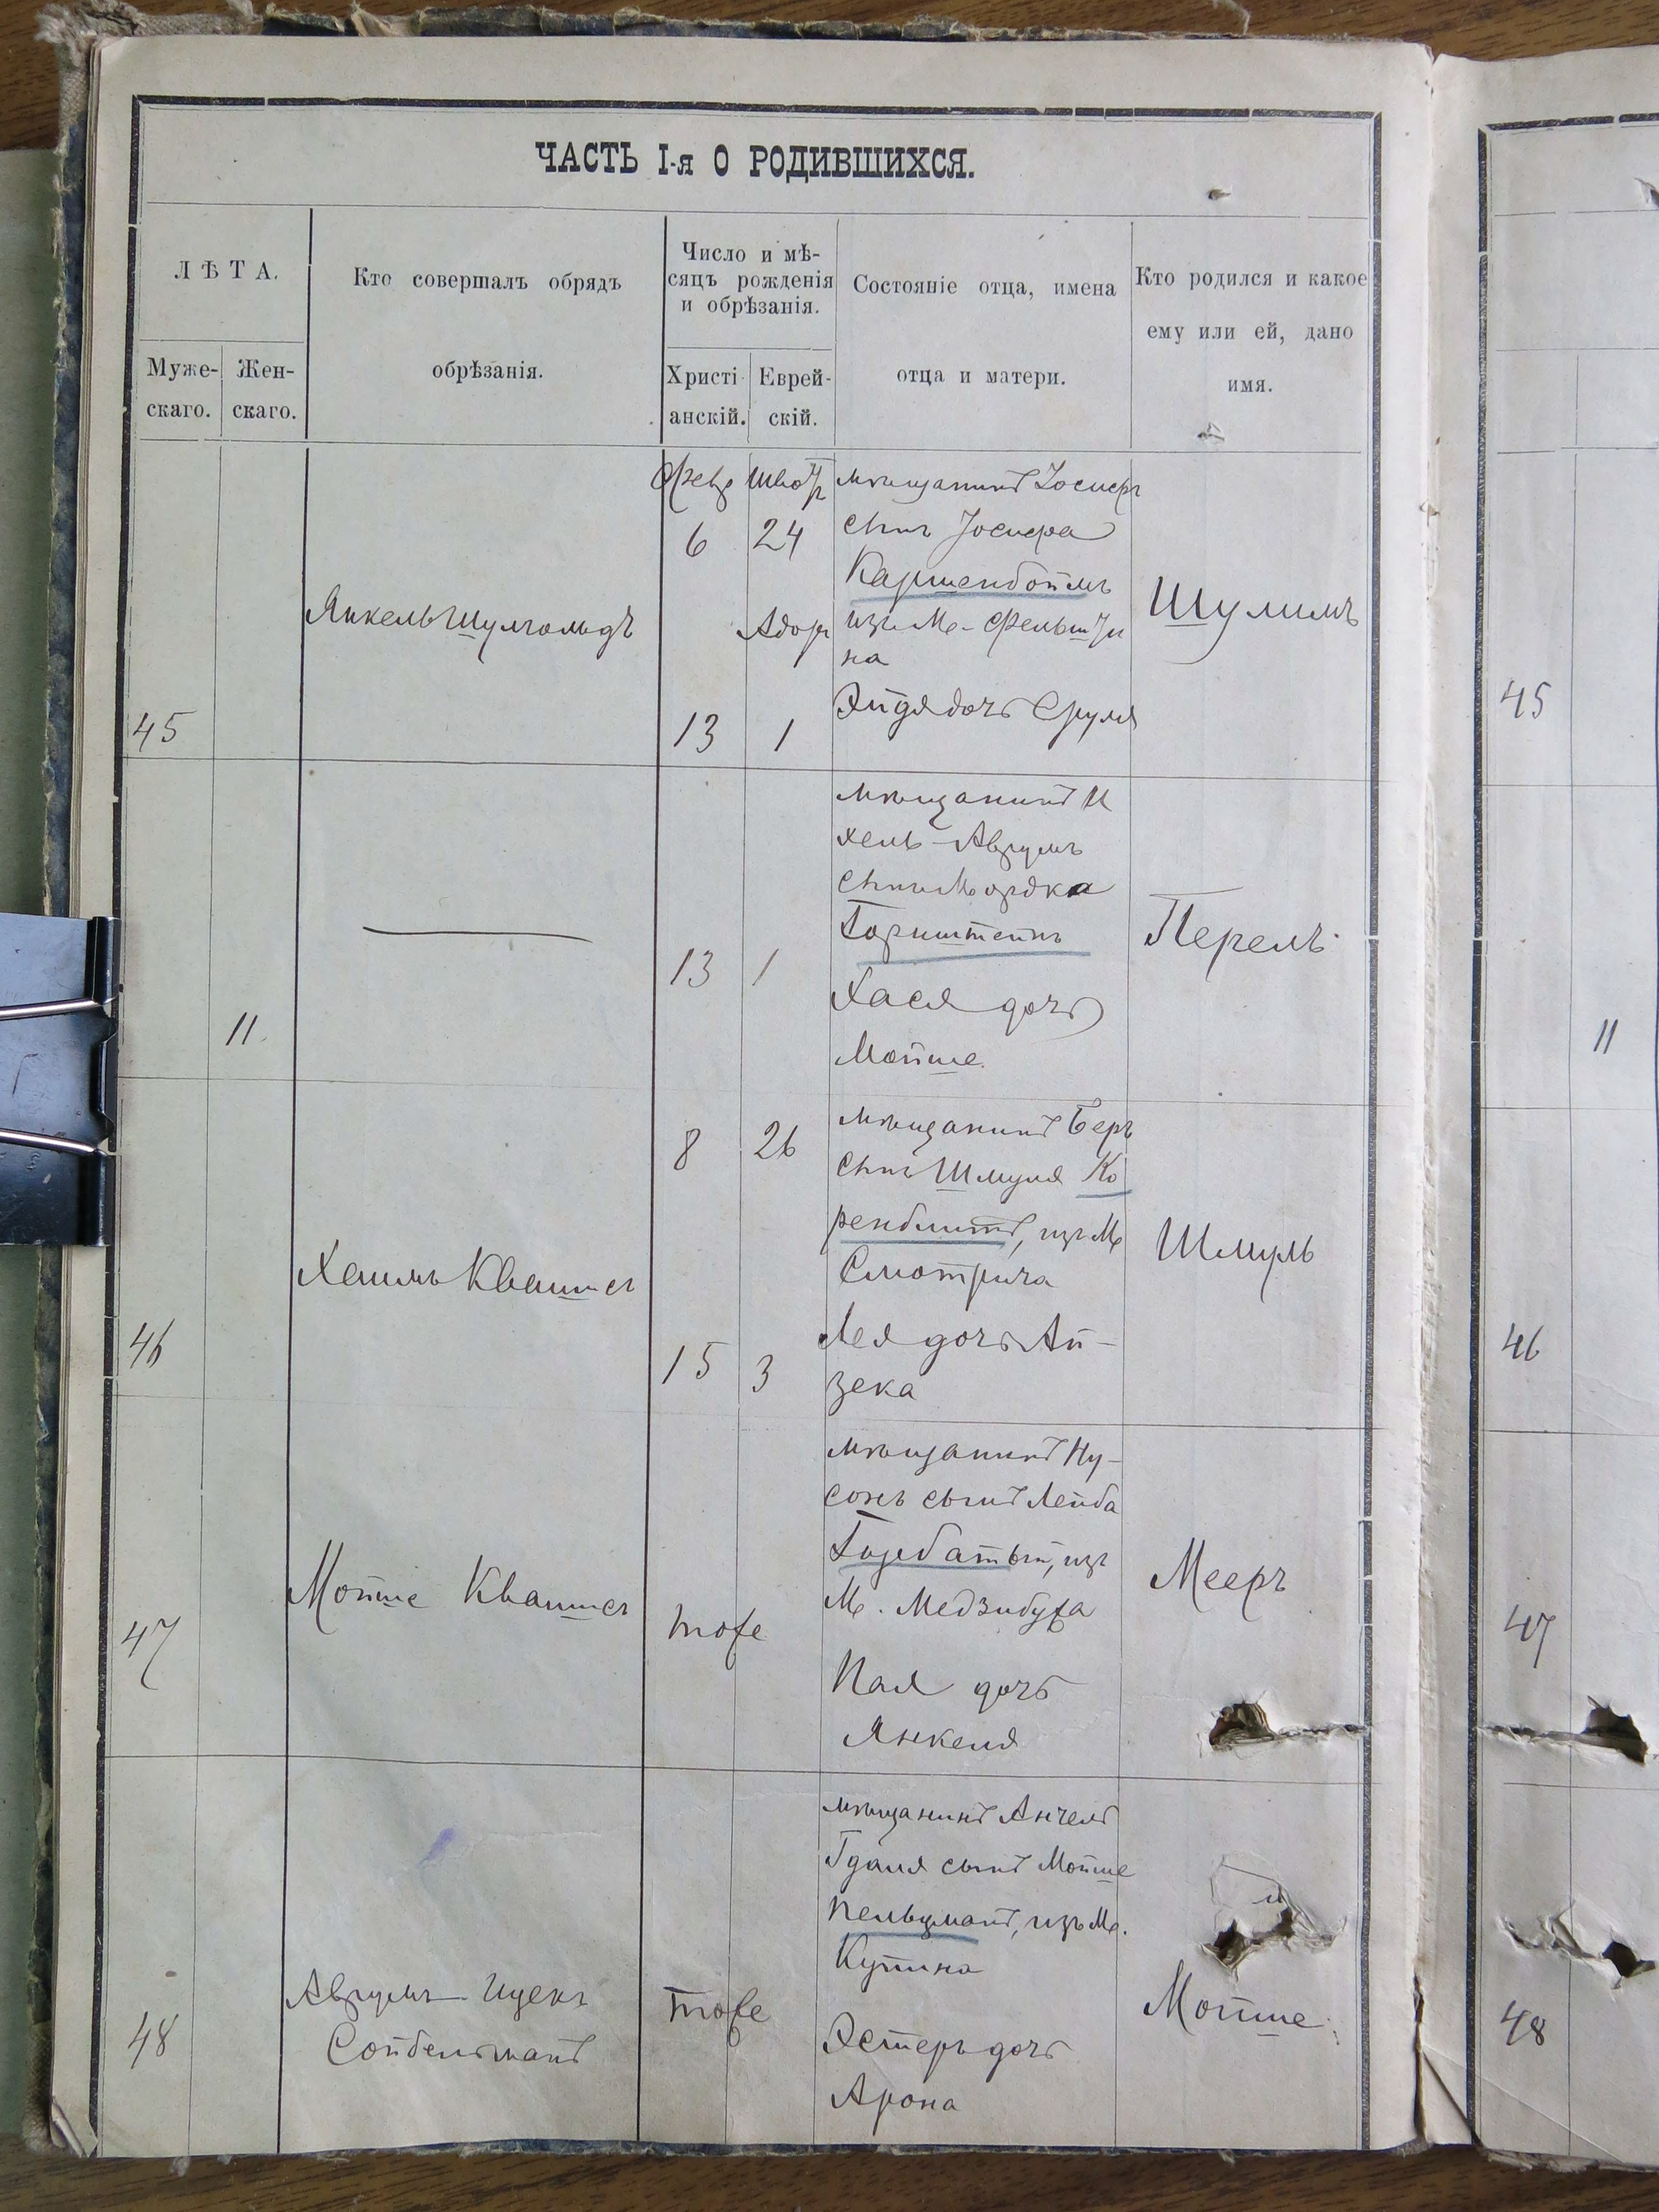 ЧАСТЬ I-я О РОДИВШИХСЯ.
ЛѢТА.
Муже-
скаго.
Жен-
скаго.
Кто совершалъ обрядъ
обрѣзанія.
Число и мѣ-
сяцъ рожденія
и обрѣзанія.
Христі
анскій.
Еврей-
скій.
Состояніе отца, имена
отца и матери.
Кто родился и какое
ему или ей, дано
имя.
45
Янкель Шулгольдъ
Февр
6
13
Шватр
24
Адоръ
1
мѣщанинъ Іосифъ
сынъ Іосифа
из м. Фельшти
на
Эйдя дочь Сруля
Шулимъ
45
11.
13
1
мѣщанинъ И
хель-Аврумъ
сынъ Мордка
Горнштейнъ
Хася дочь
Мойше.
Перель
11
46
Хаимъ Квашис
8
15
26
3
мѣщанинъ Беръ
сынъ Шмуля Ко
ренблитъ, изъ м
Смотрича
Лея дочь Ай-
зека
Шмуль
46
47
Мойше Квашис
тоже
мѣщанинъ Ну-
сонъ сынъ Лейба
Горбатый, изъ
м. Медзибужа
Пая дочь
Янкеля
Мееръ
47
48
Аврумъ-Ицекъ
Сойбельманъ
тоже
мѣщанинъ Анчель
Гдаля сынъ Мойше
Пельцманъ, изъ м.
Купина
Эстеръ дочь
Арона
Мойше.
48